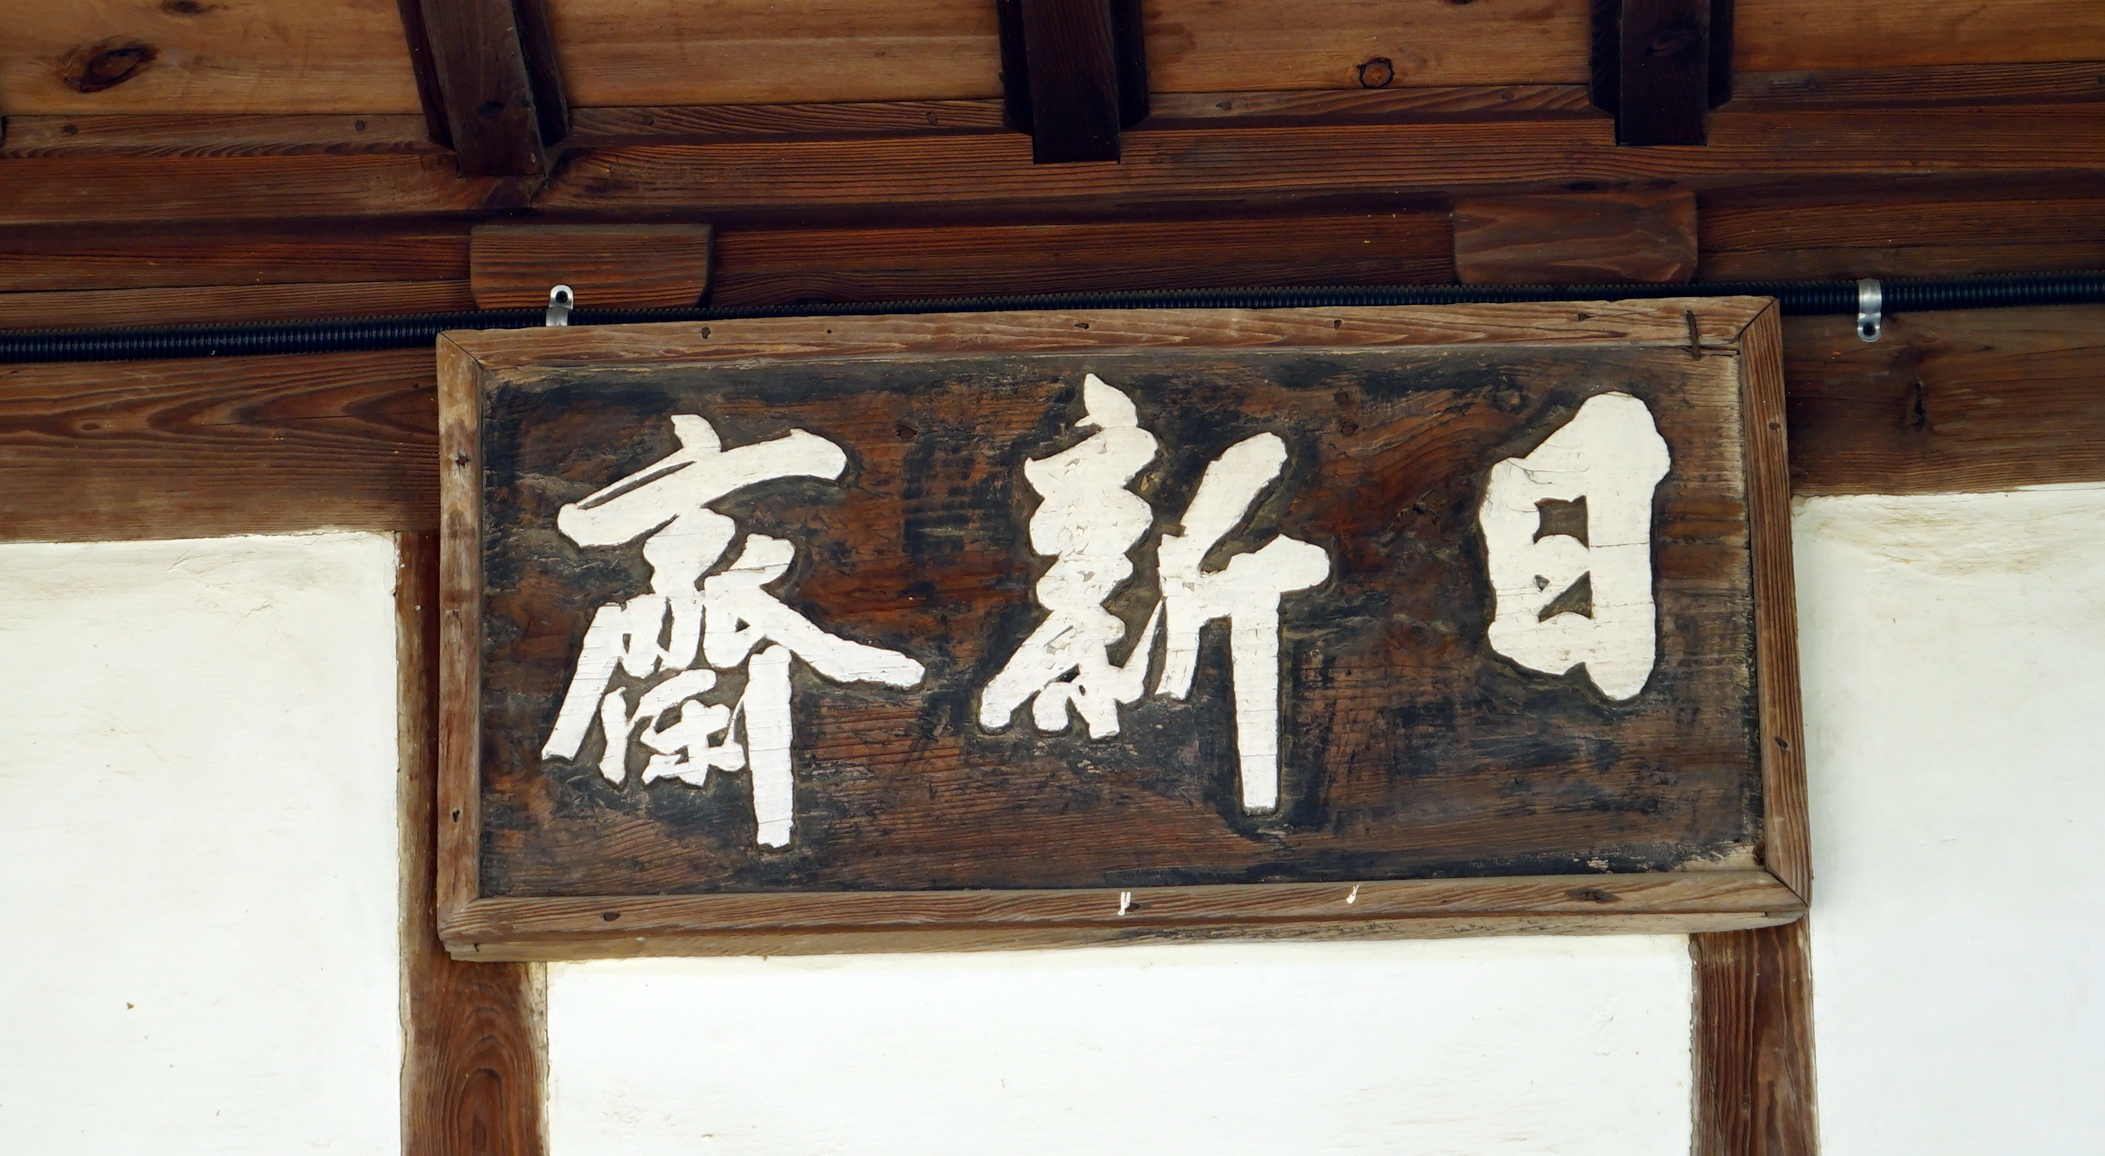 日新齋